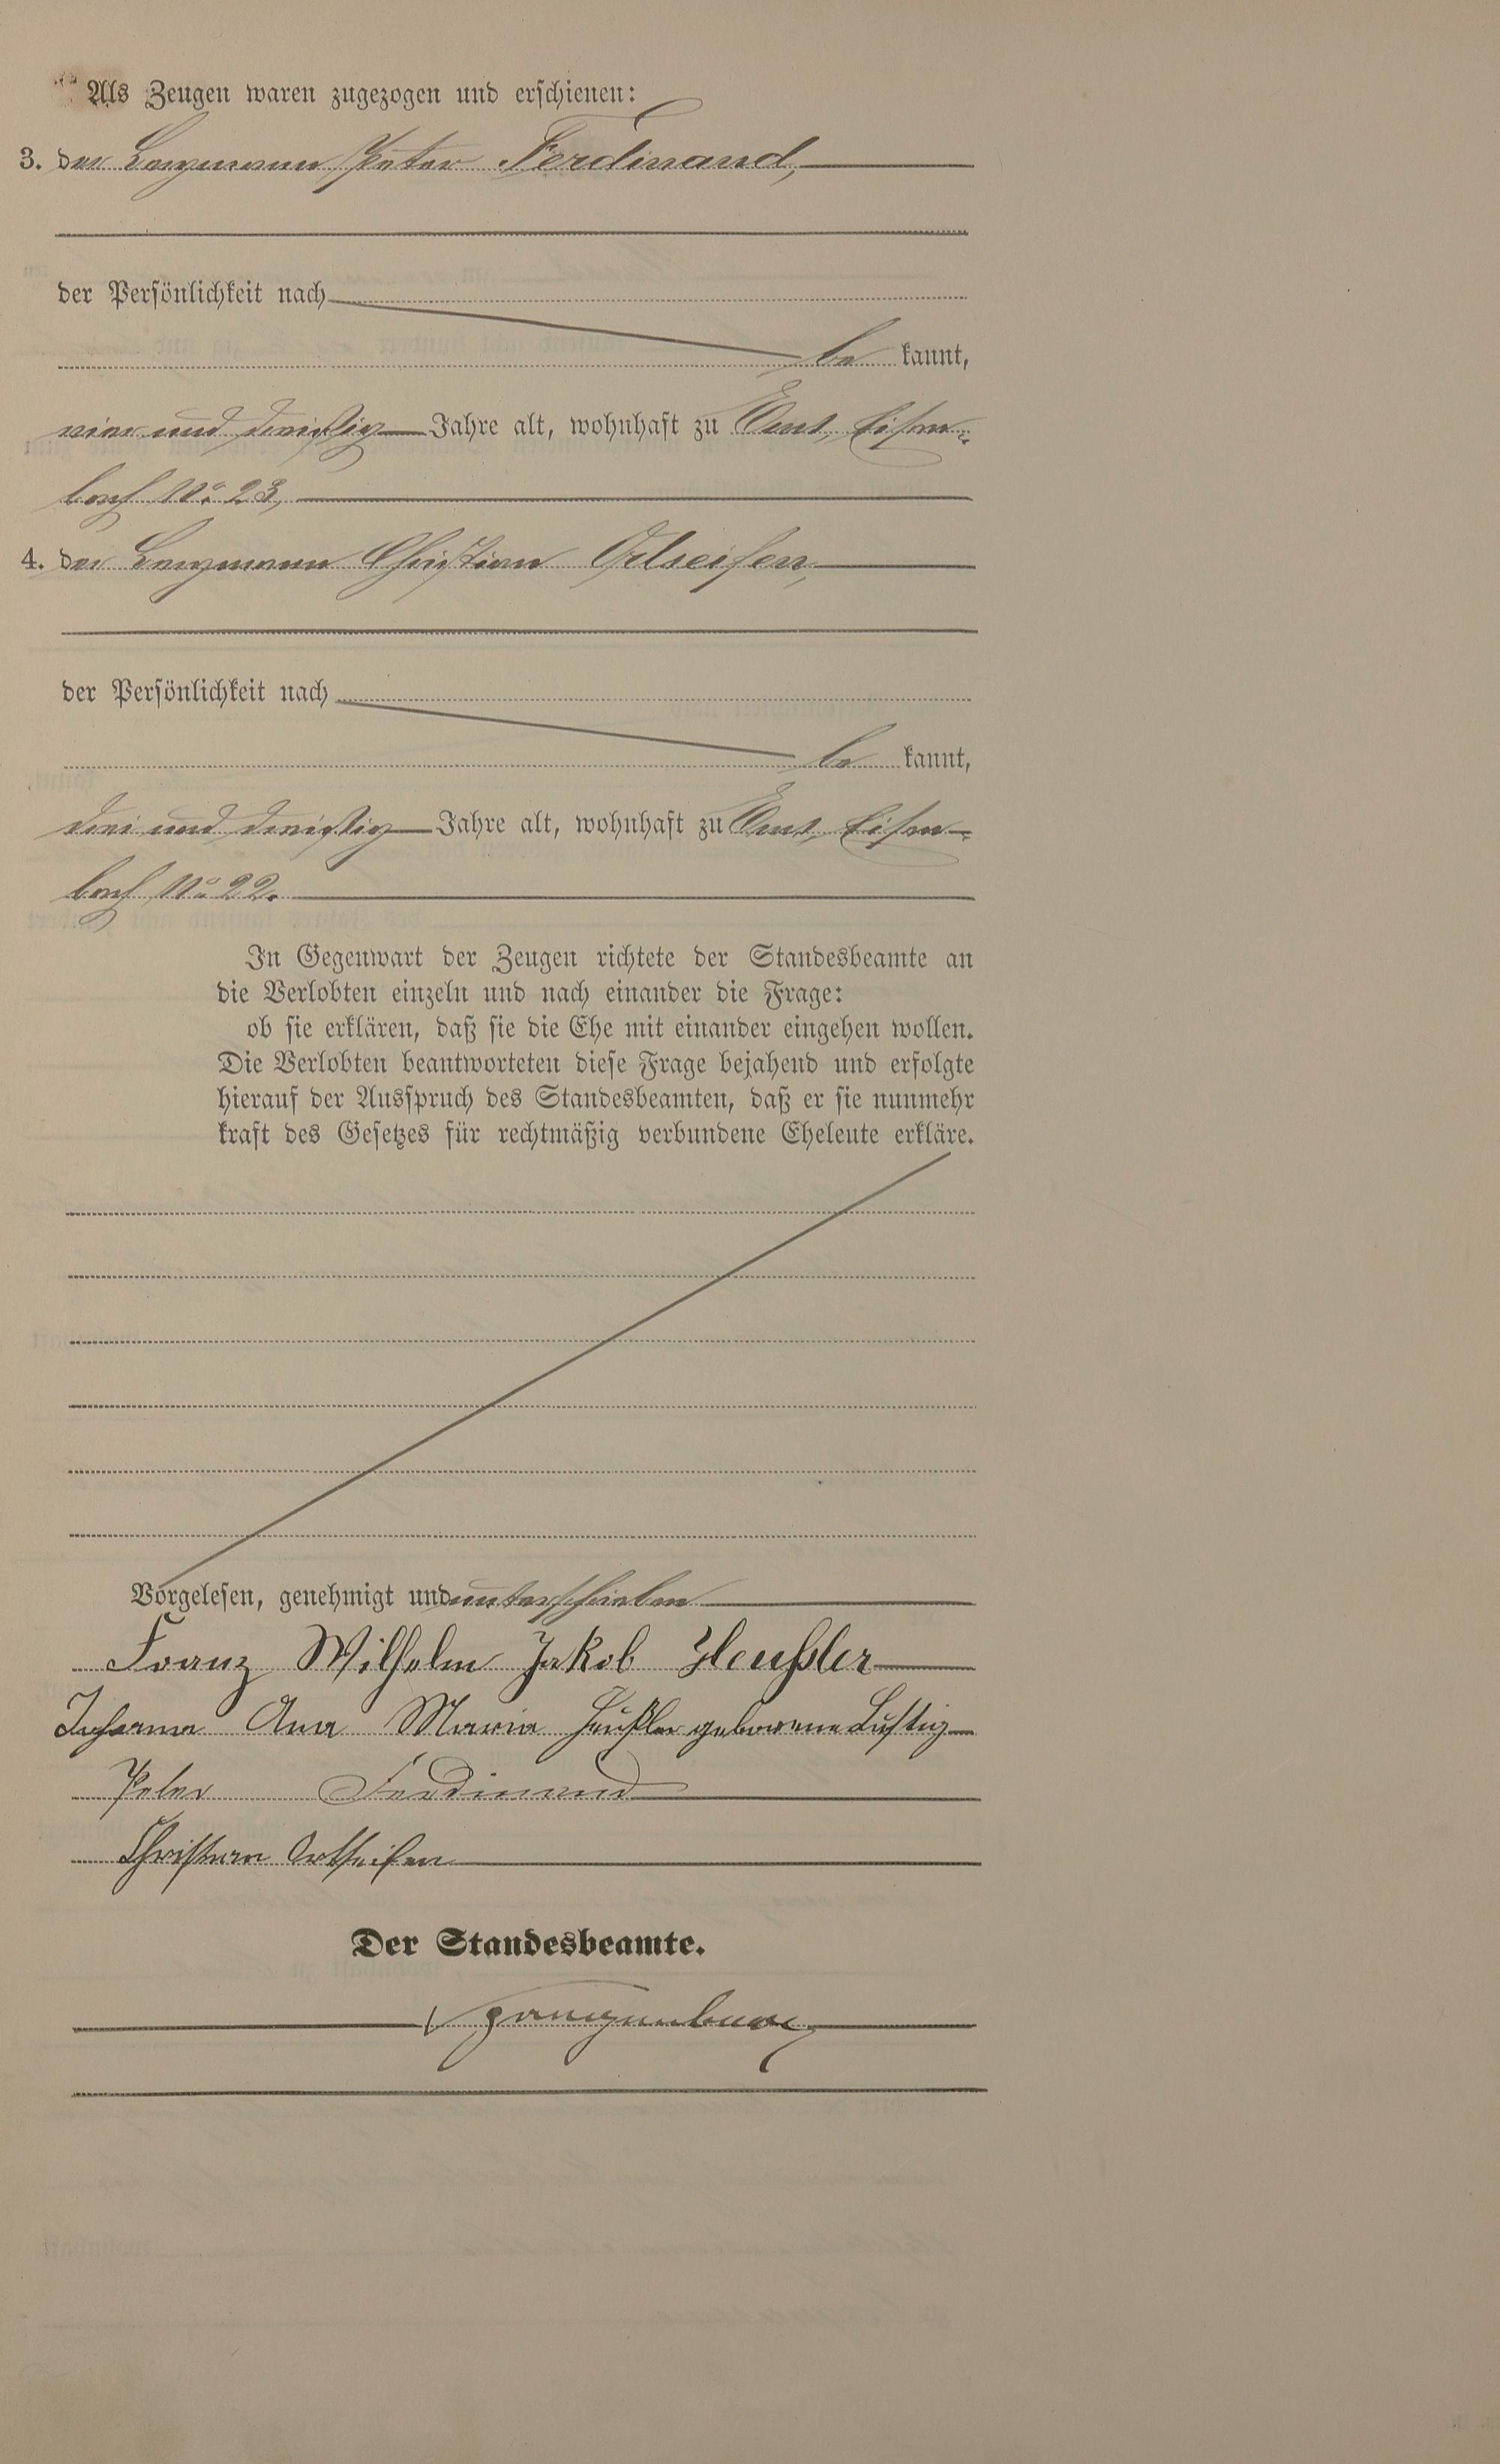 Als Zeugen waren zugezogen und erschienen:
3. der Bergmann Peter Ferdinand,
der Persönlichkeit nach
be kannt,
vier und dreißig Jahre alt, wohnhaft zu Ems, Eisen-
bach No. 23,
4. der Bergmann Christian Ortseifen,
der Persönlichkeit nach
be kannt,
drei und dreißig Jahre alt, wohnhaft zu Ems, Eisen-
bach No. 22.
In Gegenwart der Zeugen richtete der Standesbeamte an
die Verlobten einzeln und nach einander die Frage:
ob sie erklären, daß sie die Ehe mit einander eingehen wollen.
Die Verlobten beantworteten diese Frage bejahend und erfolgte
hierauf der Ausspruch des Standesbeamten, daß er sie nunmehr
kraft des Gesetzes für rechtmäßig verbundene Eheleute erkläre.
Vorgelesen, genehmigt und unterschrieben
Franz Wilhelm Jakob Heußler
Johanna Ana Maria Heußler geborene Lustig
Peter Ferdinand
Christian Ortseifen
Der Standesbeamte.